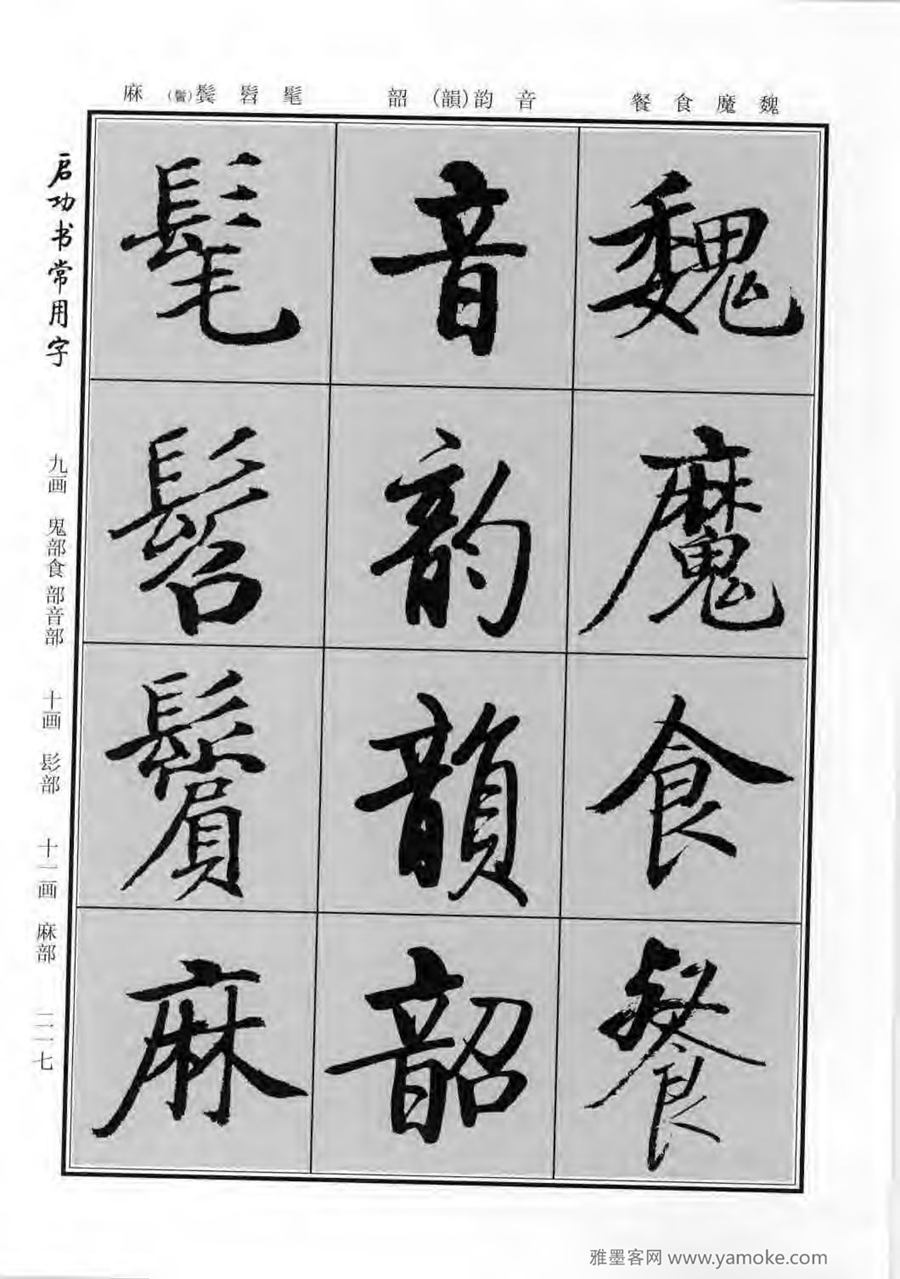 魏魔食餐
音韵(韻)韶
髦髫鬓(鬢)麻
魏魔食餐
音韵韻韶
髦髫鬢麻
启功书常用字
九画 鬼部食部音部 十画 髟部 十一画 麻部 二一七
雅墨客网 www.yamoke.com